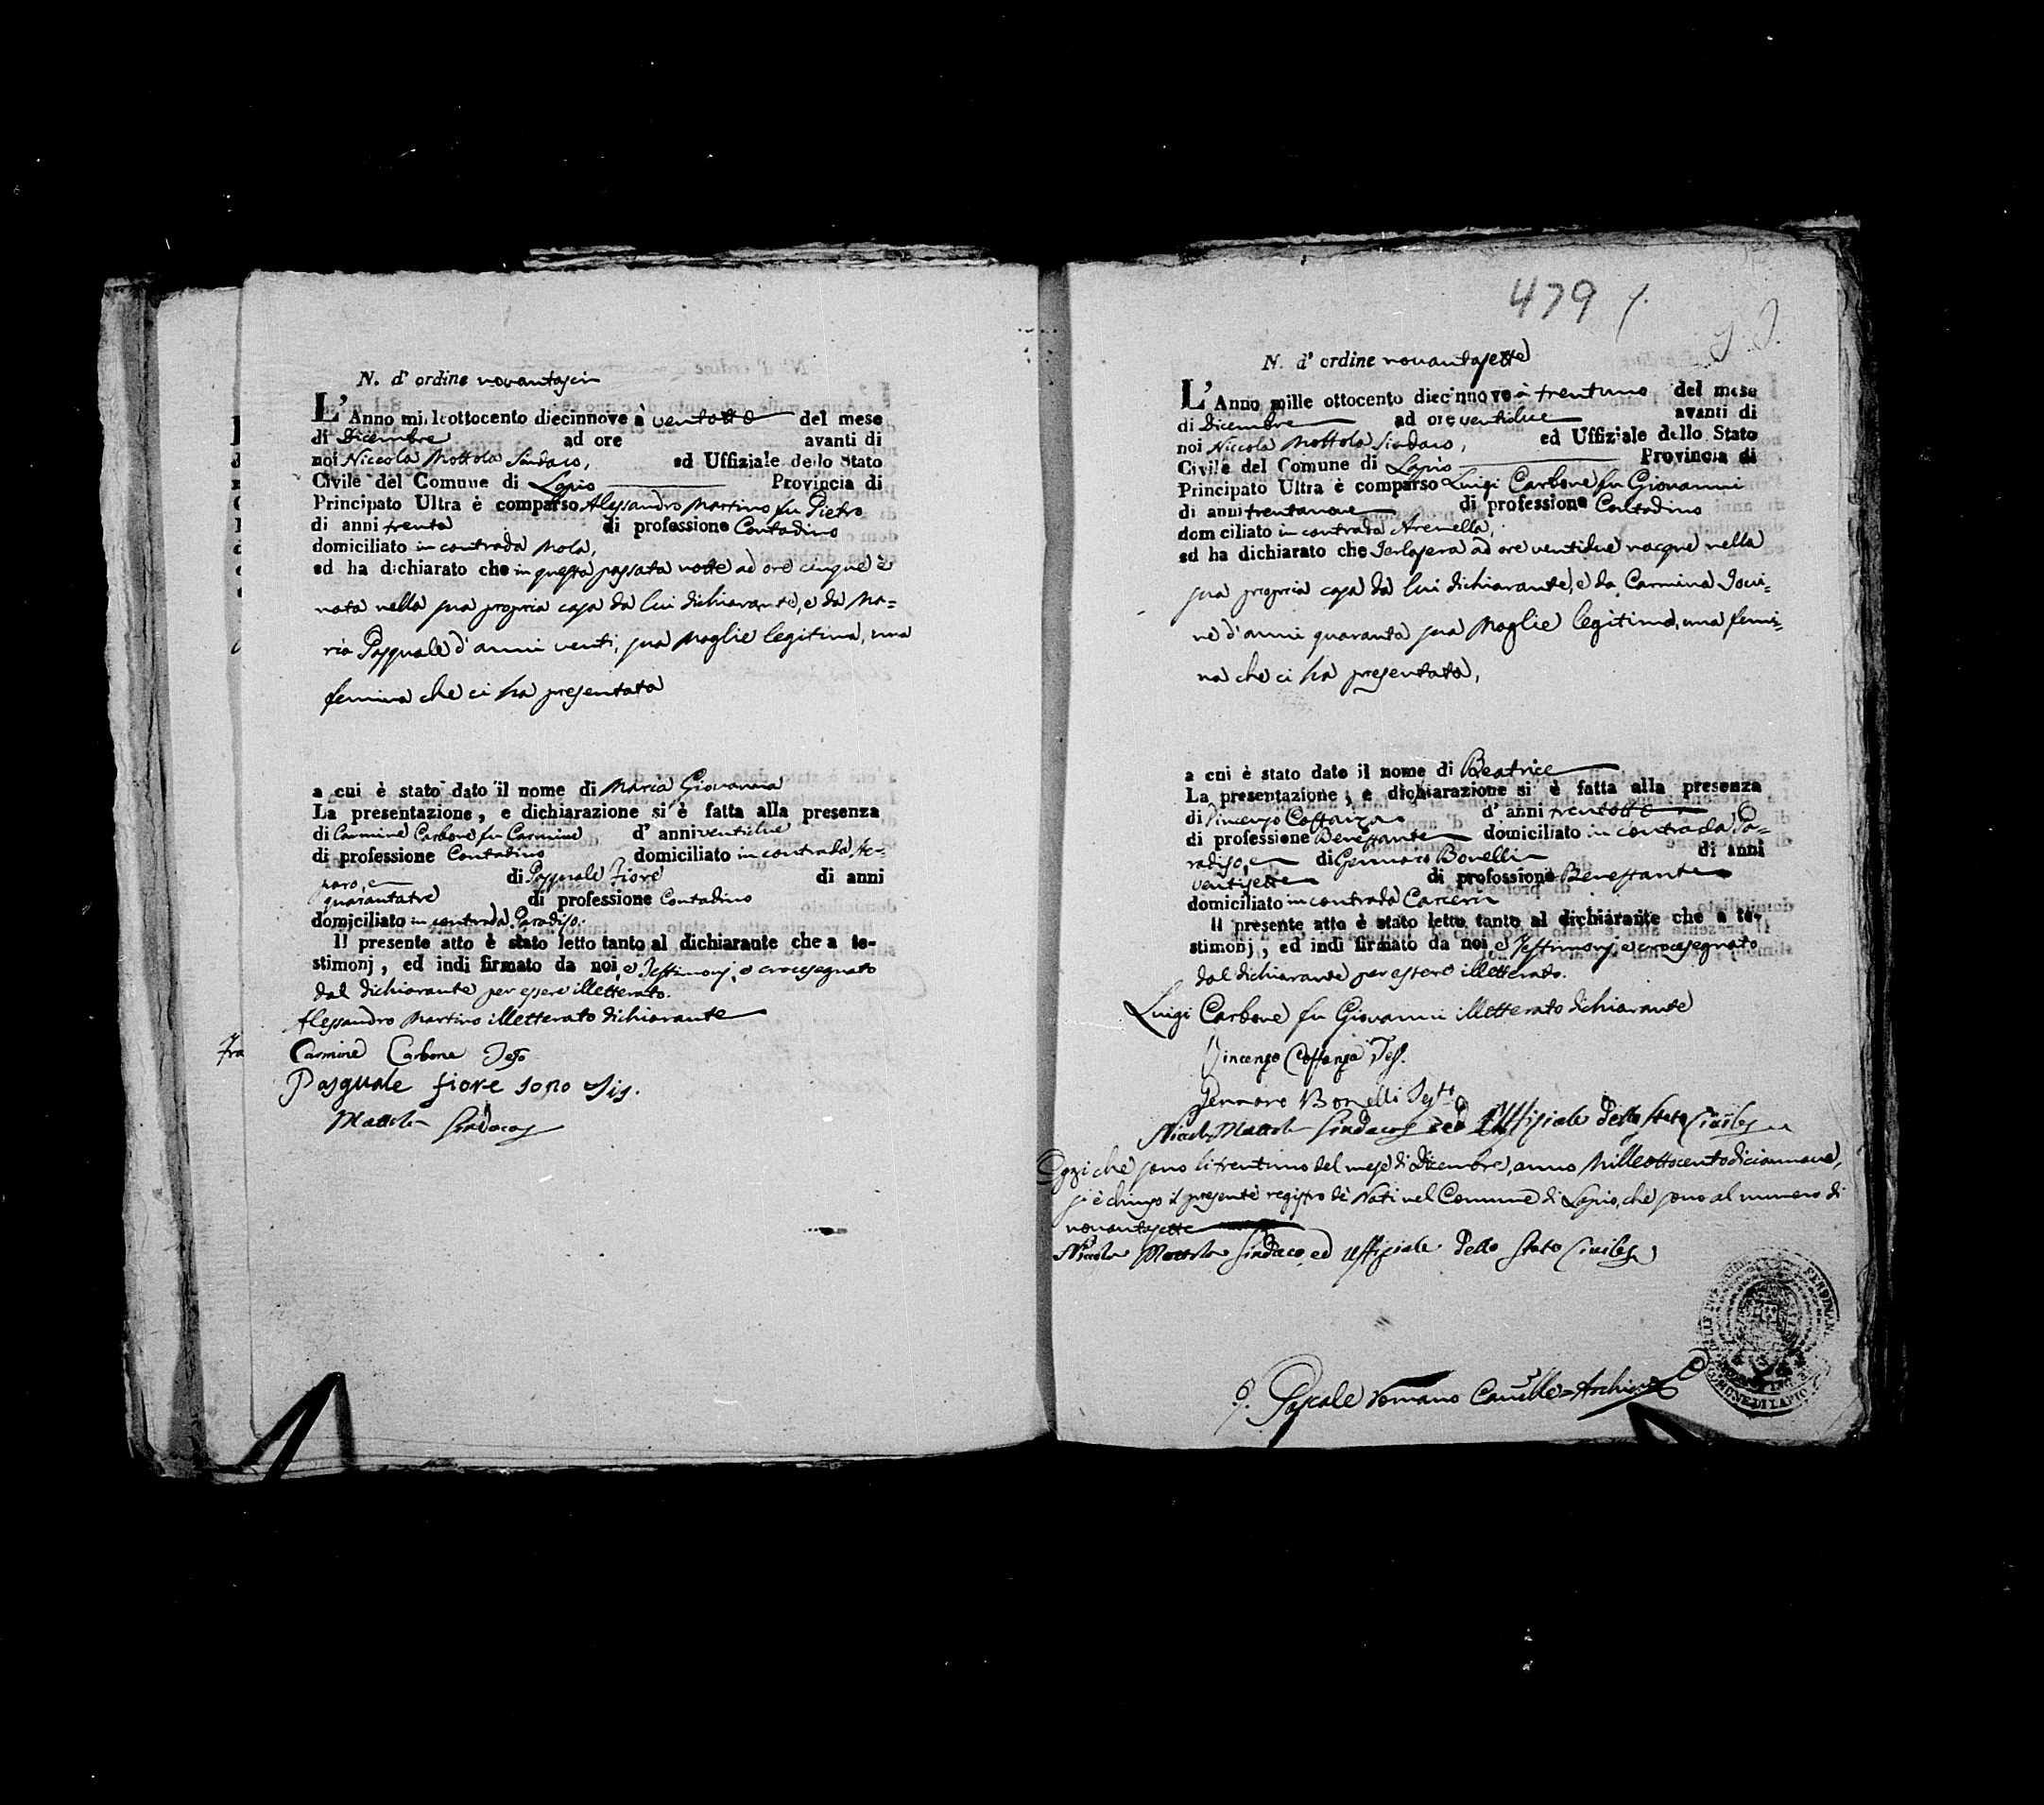 N. d' ordine novantasei
L' Anno mille ottocento diecinnove à ventotto del mese
di Dicembre ad ore avanti di
noi Niccola Mottola Sindaco, ed Uffiziale dello Stato
Civile del Comune di Lapio Provincia di
Principato Ultra è comparso Alessandro Martino fu Pietro
di anni trenta di professione Contadino
domiciliato in contrada Mola,
ed ha dichiarato che in questa passata notte ad ore cinque è
nata nella sua propria casa da lui dichiarante, e da Ma=
ria Pasquale d'anni venti, sua moglie legitima, una
femina che ci ha presentata
a cui è stato dato il nome di Maria Giovanna
La presentazione, e dichiarazione si è fatta alla presenza
di Carmine Carbone fu Carmine d' anni ventidue
di professione Contadino domiciliato in contrada
e di Pasquale Fiore di anni
quarantatre di professione Contadino
domiciliato in contrada Paradiso.
Il presente atto è stato letto tanto al dichiarante che a te-
stimonj, ed indi firmato da noi, e Testimonj, e crocesegnato
dal dichiarante per essere illetterato.
Alessandro Martino illetterato dichiarante
Carmine Carbone
Pasquale fiore sono
Mattola Sindaco
Fra
479
N. d' ordine novantasette
L' Anno mille ottocento diecinnove à trentuno del mese
di Dicembre ad ore ventidue avanti di
noi Niccola Mottola Sindaco, ed Uffiziale dello Stato
Civile del Comune di Lapio Provincia di
Principato Ultra è comparso Luigi Carbone fu Giovanni
di anni trentanove di professione Contadino
domiciliato in contrada Arenella,
ed ha dichiarato che Jerlasera ad ore ventidue nacque nella
sua propria casa da lui dichiarante, e da Carmina Jovi=
ne d'anni quaranta sua Moglie legitima, una femi=
na che ci ha presentata,
a cui è stato dato il nome di Beatrice
La presentazione, e dichiarazione si è fatta alla presenza
di Vincenzo Costanza d' anni trentotto
di professione Benestante domiciliato in contrada Pa=
radiso, e di Gennaro Bonelli di anni
ventisette di professione Benestante
domiciliato in contrada Carceri
Il presente atto è stato letto tanto al dichiarante che a te-
stimonj, ed indi firmato da noi e Testimonj, e crocesegnato
dal dichiarante per essere illetterato.
Luigi Carbone fu Giovanni illetterato dichiarante
Vincenzo Costanza Tes.
Gennaro Bonelli Test.
Niccola Mattola Sindaco ed Uffiziale dello Stato Civile
Oggi che sono li trentuno del mese di Dicembre, anno Milleottocentodiciannove,
si è chiuso il presente registro de' Nati nel Comune di Lapio, che sono al numero di
novantasette
Niccola Mattola Sindaco, ed Uffiziale dello Stato Civile
Pascale Romano
COMUNE DI LAPIO